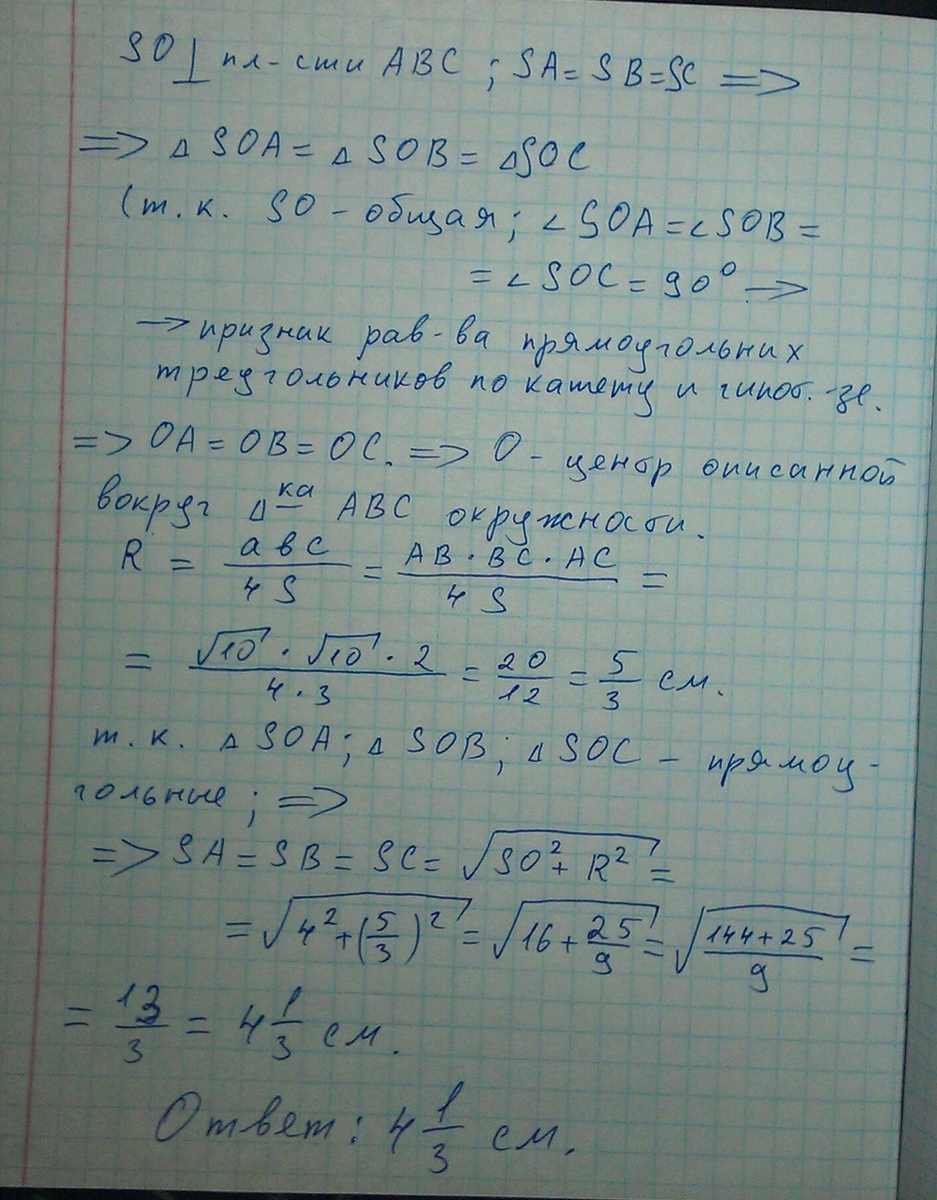 SO⊥ пл-сти ABC ; SA = SB = SC =>
=> △ SOA = △ SOB = △SOC
(т.к. SO - общая; ∠SOA = ∠SOB =
= ∠SOC = 90° →
→ призник рав-ва прямоугольних
треугольников по катету и гипот.-зе.
=> OA = OB = OC. => O - центр описанной
вокруг △ка ABC окружности.
R = abc/4S = AB · BC · AC/4S =
= √10 · √10 · 2/4 · 3 = 20/12 = 5/3 см.
т.к. △ SOA; △ SOB; △ SOC – прямоу-
гольные; =>
=> SA = SB = SC = √SO² + R² =
= √4² + (5/3)² = √16 + 25/9 = √144 + 25/9 =
= 13/3 = 4 1/3 см.
Ответ: 4 1/3 см.